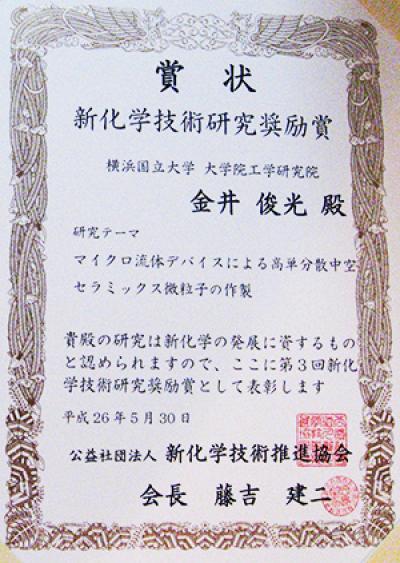 賞状
新化学技術研究奨励賞
横浜国立大学 大学院工学研究院
金井 俊光 殿
研究テーマ
マイクロ流体デバイスによる高単分散中空
セラミックス微粒子の作製
貴殿の研究は新化学の発展に資するもの
と認められますので、ここに第3回新化
学技術研究奨励賞として表彰します
平成26年5月30日
公益社団法人 新化学技術推進協会
会長 藤吉 建二